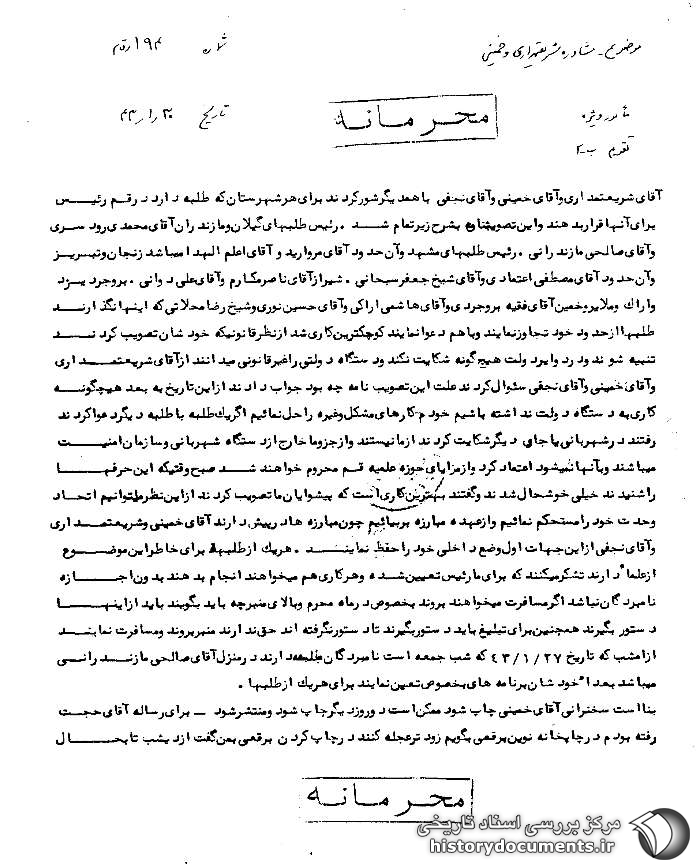 موضوع - مشاوره شریعتمداری و خمینی
شماره ۱۹۴ رقم
محرمانه
تاریخ ۴۳/۱/۳۰
مأمور ویژه
تقویم ب-۲
آقای شریعتمداری وآقای خمینی وآقای نجفی با همدیگر شور کردند برای هر شهرستان که طلبه دارد در قم رئیس
برای آنها قرار بدهند واین تصویبنامه بشرح زیر تمام شد . رئیس طلبه‌های گیلان ومازندران آقای محمدی رود سری
وآقای صالحی مازندرانی . رئیس طلبه‌های مشهد وآن حدود آقای مروارید و آقای اعلم الهدا میباشد زنجان وتبریز
وآن حدود آقای مصطفی اعتمادی وآقای شیخ جعفر سبحانی . شیراز آقای ناصر مکارم وآقای علی دوانی . بروجرد یزد
واراک وملایر وخمین آقای فقیه بروجردی وآقای هاشمی اراکی وآقای حسین نوری وشیخ رضا محلاتی که اینها نگذارند
طلبه‌ها از حدود خود تجاوز نمایند وباهم دعوا نمایند کوچکترین کاری شد از نظر قانونیکه خودشان تصویب کردند
تنبیه شوند ودر دوایر دولت هیچ گونه شکایت نکند ودستگاه دولتی را غیر قانونی میدانند از آقای شریعتمداری
وآقای خمینی وآقای نجفی سئوال کردند علت این تصویب نامه چه بود جواب دادند از این تاریخ به بعد هیچگونه
کاری به دستگاه دولت نداشته باشیم خودم کارهای مشکل وغیره را حل نمائیم اگر یک طلبه با طلبه دیگر دعوا کردند
رفتند در شهربانی یا جای دیگر شکایت کردند از ما نیستند واز جزو ما خارج از دستگاه شهربانی وسازمان امنیت
میباشند وبآنها نمیشود اعتماد کرد واز مزایای حوزه علمیه قم محروم خواهند شد صبح وقتیکه این حرفها
را شنیدند خیلی خوشحال شدند وگفتند بهترین کاری است که پیشوایان ما تصویب کردند از این نظر میتوانیم اتحاد
وحدت خود را مستحکم نمائیم واز عهده مبارزه بر بیائیم چون مبارزه ها در پیش دارند آقای خمینی وشریعتمداری
وآقای نجفی از این جهات اول وضع داخلی خود را حفظ نمایند . هریک از طلبه‌ها برای خاطر این موضوع
از علما دارند تشکر میکنند که برای ما رئیس تعیین شده وهر کاری هم میخواهند انجام بدهند بدون اجازه
نامبردگان نباشد اگر مسافرت میخواهند بروند بخصوص در ماه محرم وبالای منبر چه باید بگویند باید از اینها
دستور بگیرند همچنین برای تبلیغ باید دستور بگیرند تا دستور نگرفته اند حق ندارند منبر بروند ومسافرت نمایند
از امشب که تاریخ ۴۳/۱/۲۷ که شب جمعه است نامبردگان جلسه دارند در منزل آقای صالحی مازندرانی
میباشد بعداً خودشان برنامه های بخصوص تعین نمایند برای هر یک از طلبه‌ها .
بنا است سخنرانی آقای خمینی چاپ شود ممکن است دو روز دیگر چاپ شود ومنتشر شود - برای رساله آقای حجت
رفته بودم در چاپخانه نوین برقعی بگویم زودتر عجله کنند در چاپ کردن برقعی بمن گفت از دیشب تا بحال
محرمانه
مرکز بررسی اسناد تاریخی
historydocuments.ir